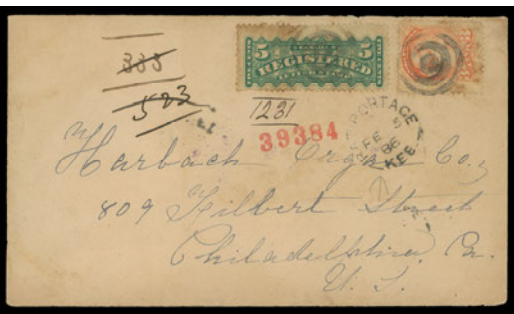 385
523
5 REGISTERED 5
1231
39384
PORTAGE
FE
86
Harbach Organ Co.,
809 Filbert Street
Philadelphia, Pa.
U. S.